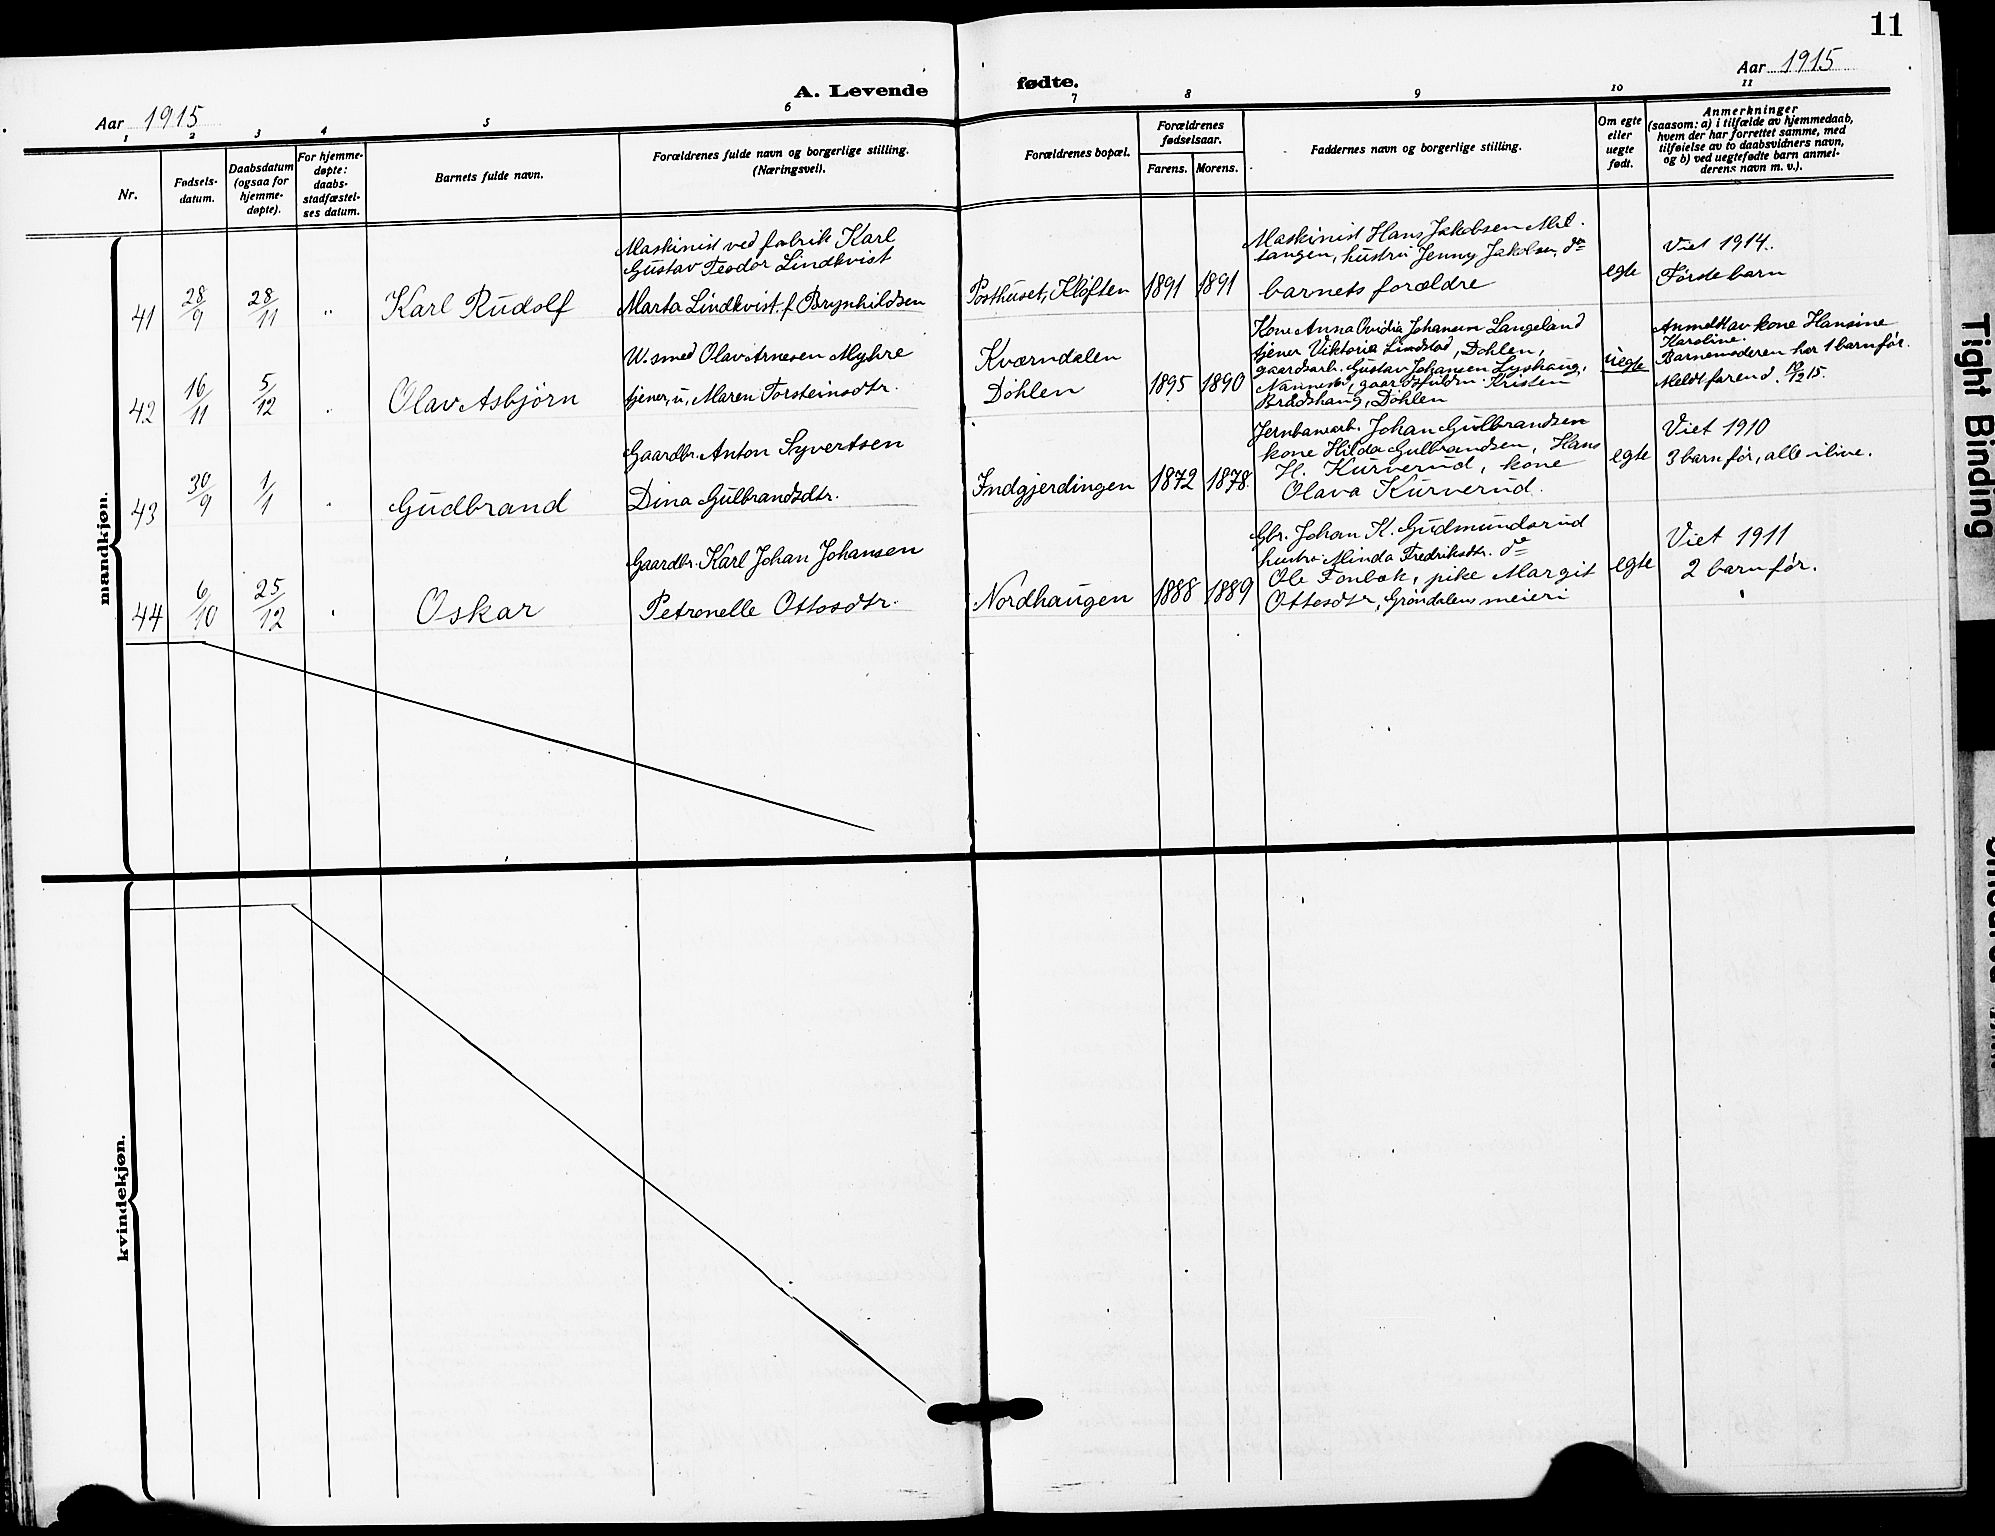 11
Aar 1915
A. Levende fødte.
Aar 1915
1 2 3 4 5 6 7 8 9 10 11
Nr.
Fødsels-
datum.
Daabsdatum
(ogsaa for
hjemme-
døpte).
For hjemme-
døpte:
daabs-
stadfæstel-
ses datum.
Barnets fulde navn.
Forældrenes fulde navn og borgerlige stilling.
(Næringsvei).
Forældrenes bopæl.
Forældrenes
fødselsaar.
Farens. Morens.
Faddernes navn og borgerlige stilling.
Om egte
eller
uegte
født.
Anmerkninger
(saasom: a) i tilfælde av hjemmedaab,
hvem der har forrettet samme, med
tilføielse av to daabsvidners navn,
og b) ved uegtefødte barn anmel-
derens navn m. v.).
mandkjøn.
41
28/9
28/11
"
Karl Rudolf
Maskinist ved fabrik Karl
Gustav Teodor Lindkvist
Marta Lindkvist f. Brynhildsen
Posthuset, Kløften
1891
1891
Maskinist Hans Jakobsen
tangen, hustru Jenny Jakobsen, do
barnets forældre
egte
Viet 1914.
Første barn
42
16/11
5/12
"
Olav Asbjørn
U. smed Olav Arnesen Myhre
tjener, u, Maren Torsteinsdtr.
Kværndalen
Döhlen
1895
1890
Kone Anna Ovidia Johansen Langeland
tjener Viktoria Lindstad, Döhlen,
gaardsarb. Gustav Johansen Lyshaug,
Nannestad, Kristen
Brådshaug, Döhlen
uegte
Anmeldt av kone Hansine
Karoline.
Barnemoderen har 1 barn før.
Meldt 10/12 15.
43
30/9
1/1
"
Gudbrand
Gaardbr. Anton Syvertsen
Dina Gulbrandsdtr.
Indgjerdingen
1872
1878.
Jernbanearb. Johan Gulbrandsen
kone Hilda Gulbrandsen, Hans
H. Kurverud, kone
Olava Kurverud.
egte
Viet 1910
3 barn før, alle i live.
44
6/10
25/12
"
Oskar
Gaardbr. Karl Johan Johansen
Petronelle Ottosdtr.
Nordhaugen
1888
1889
Gbr. Johan K. Gudmundsrud
hustru Minda Fredriksdtr. do
Ole Fonbæk, pike Margit
Ottosdtr, Gröndalens meieri
egte
Viet 1911
2 barn før.
kvindekjøn.
Tight Binding